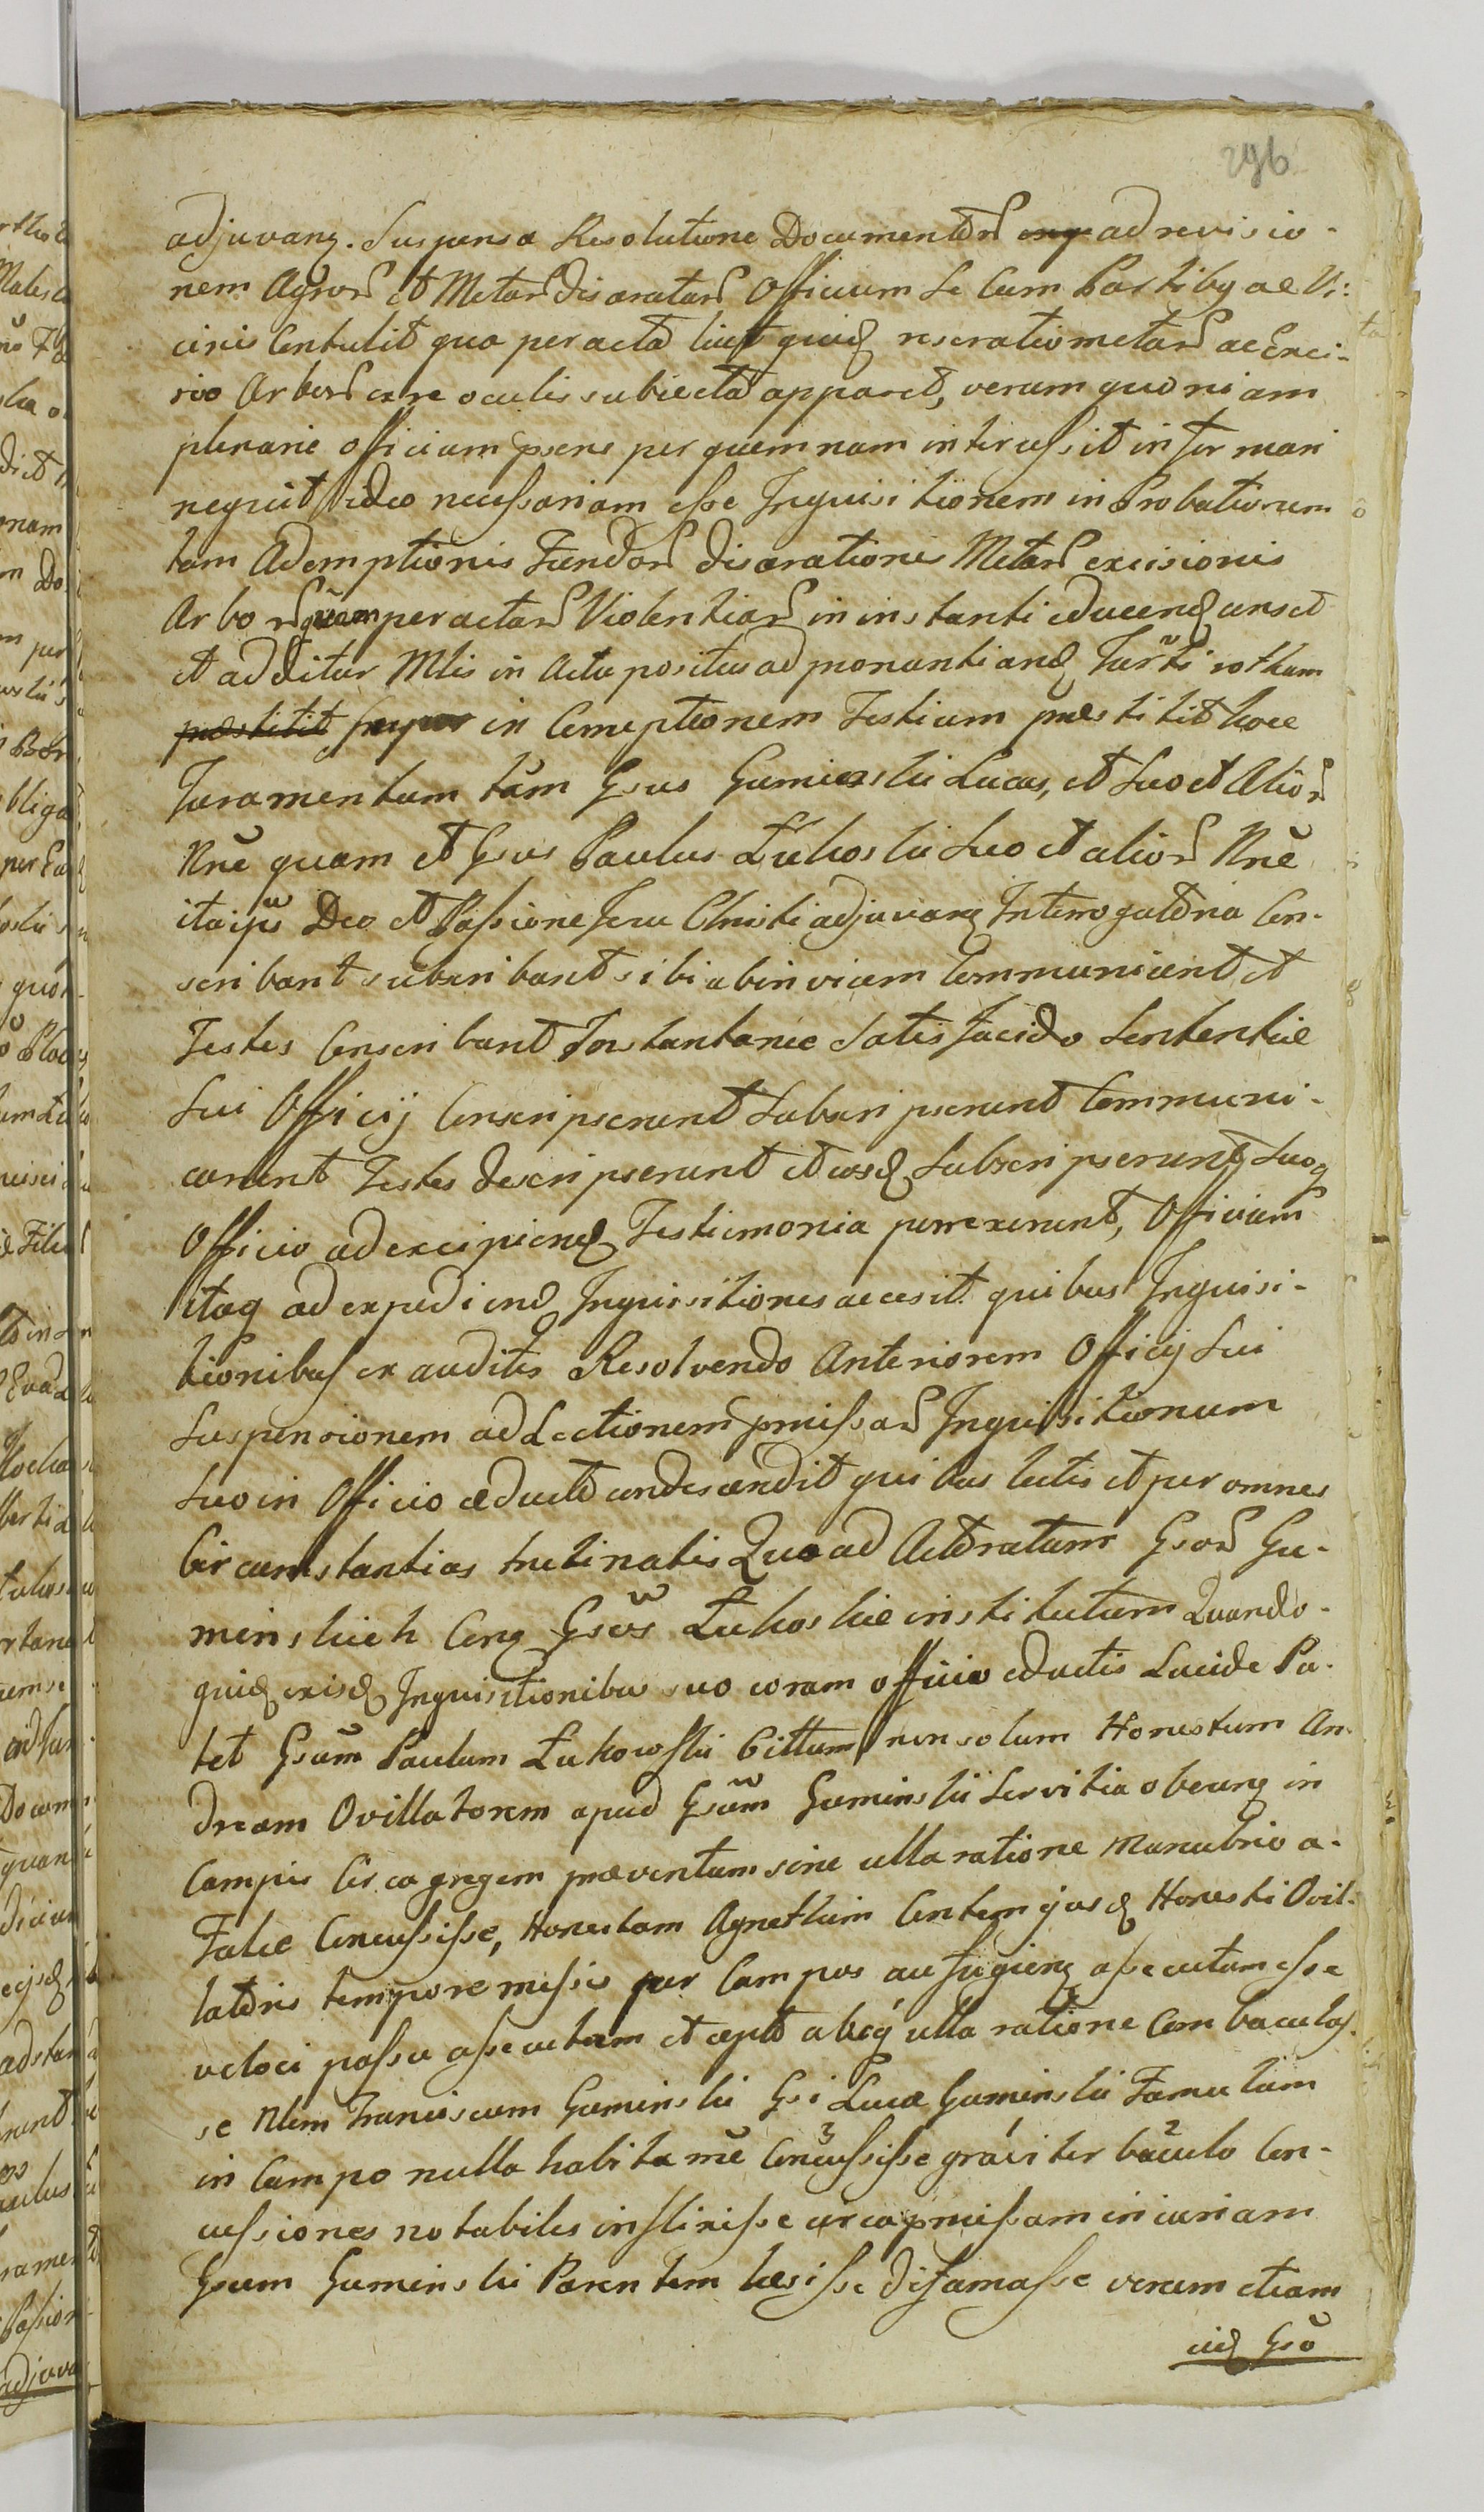 296
adjuvanꝫ. Suspensa Resolutione Documentor̃ ad revisio-
nem Agror̃ et Metar̃ disaratar̃ Officium Se Cum Partibꝫ ac Vi-
cinis Contulit quo peracto licet quidꝫ reseratio metar̃ ac Exci-
sio Arbor̃ ex re oculis subiecta apparet, verum quoniam
plenarie officium p̃sens per quemnam intercessit informari
nequit ideo necessariam esse Inquisitionem in Probationem
tam Ademptionis Fundor̃ disarationis Metar̃ excisionis
Arbor̃ quam peractar̃ Violentiar̃ in instanti educendꝫ censet
et additur Mlis in Actu positus ad pronuntiandꝫ Jur̃ti rotham
praestitit in Comeptionem Testium praestitit hocce
Juramentum tam Gsus Guminski Lucas, et Suo et Alior̃
Nñe quam et Gsus Paulus Łukoski Suo et alior̃ Nñe
ita ipis Deo et Passione Jesu Christi adjuvanꝫ Interrogatoria Con-
scribant subscribant sibi ab invicem Communicent et
Testes Conscribant Instantanee Satisfaciendo Sententiae
Sui Officij Conscripserunt Subscripserunt Communi-
carunt Testes descripserunt et eosdꝫ Subscripserunt Suoqꝫ
Officio ad excipiendꝫ Testimonia porrexerunt, Officium
itaqꝫ ad expediendꝫ Inquisitiones accesit quibus Inquisi-
tionibus exauditis Resolvendo Anteriorem Officij Sui
Suspensionem ad Lectionem p̃missar̃ Inquisitionum
Suo in Officio educto condescendit quibus lectis et per omnes
Circumstantias trutinatis Quoad Actoratum Gsor̃ Gu-
minskich Conꝫ Gsõs Łukoskie institutum Quando-
quidꝫ ex iisdꝫ Inquisitionibus suo coram officio eductis Lucide Pa-
tet Gsum Paulum Łukowski Cittum non solum Honestum An-
dream Ovillatorem apud Gsum Guminski Servitia obeunꝫ in
Campis Circa gregem praeventum sine ulla ratione Manubrio a
Falce Concussisse, Honestam Agnetkam Contem ejusdꝫ Honesti Ovil-
latoris tempore messis per Campos aufugienꝫ assecutum esse
veloci passu assecutam et absqꝫ ulla ratione Com baculas-
se Nlem Franciscum Guminski Gsi Lucae Guminski Famulum
in Campo nulla habita ñe Concussisse graviter baculo Con-
cussiones notabiles inflixisse circa p̃missam iniuriam
Gsum Guminski Parentem laesisse difamasse verum etiam
eidꝫ Gso